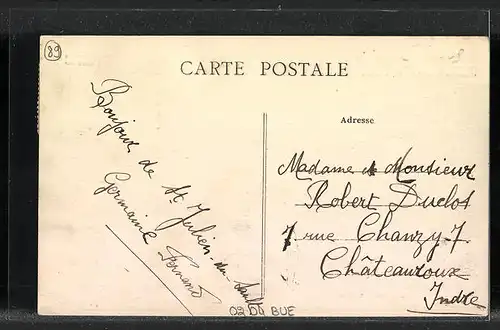 89
CARTE POSTALE
Bonjour de St Julien-du-Sault
Germaine Fernand
Adresse
Madame & Monsieur
Robert Duclot
7 rue Chanzy 7
Châteauroux
Indre